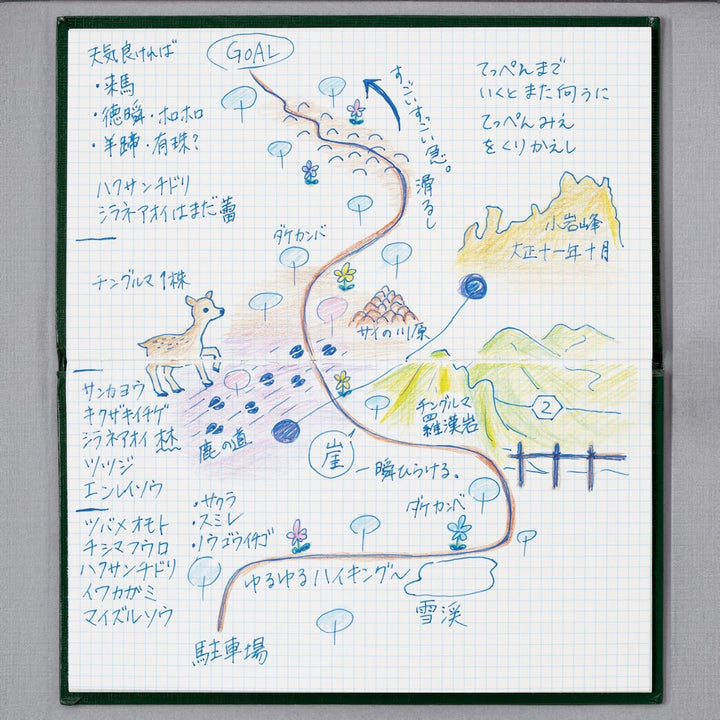 GOAL
天気良ければ
・来馬
・徳瞬・ホロホロ
・羊蹄・有珠？
ハクサンチドリ
シラネアオイはまだ蕾
チングルマ1株
すごいすごい急。
滑るし
てっぺんまで
いくとまた向うに
てっぺんみえ
をくりかえし
小岩峰
大正十一年十月
ダケカンバ
サイの川原
サンカヨウ
キクザキイチゲ
シラネアオイ
ツツジ
エンレイソウ
鹿の道
チングルマ
羅漢岩
2
崖
一瞬ひらける。
ツバメオモト
チシマフウロ
ハクサンチドリ
イワカガミ
マイズルソウ
・サクラ
・スミレ
・ノウゴウイチゴ
ダケカンバ
ゆるゆるハイキング〜
雪渓
駐車場